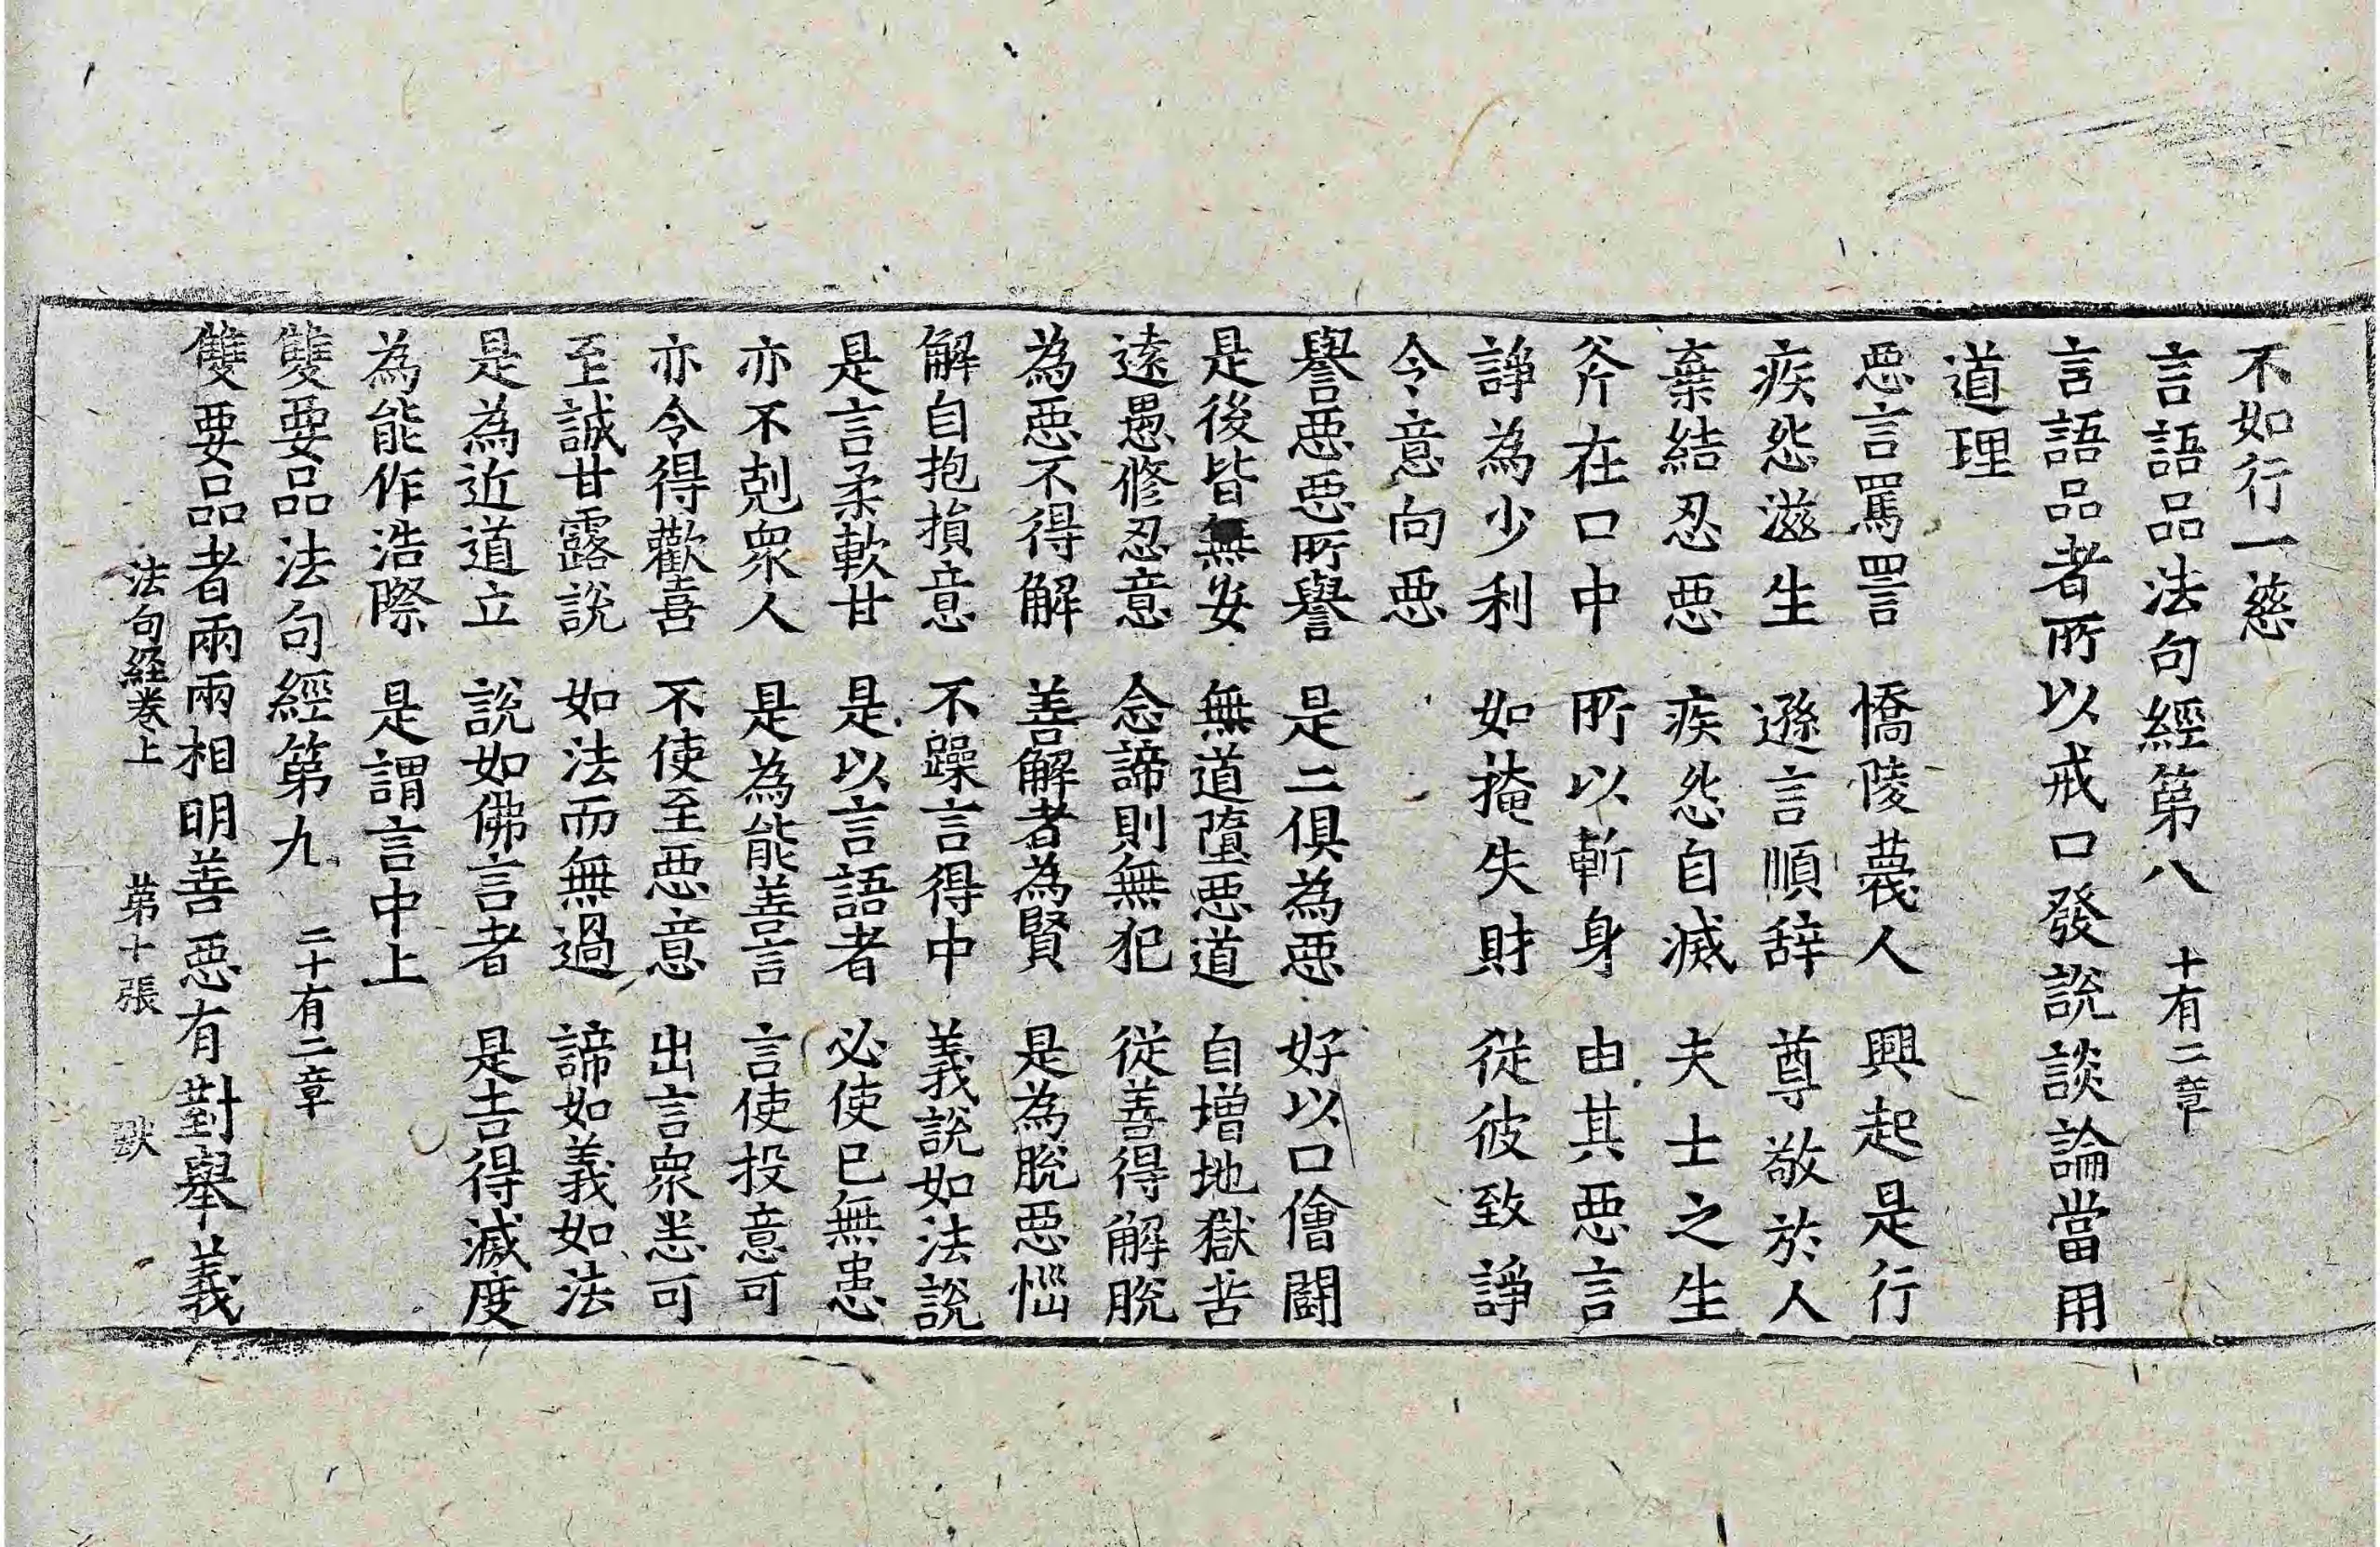 不如行一慈
言語品法句經第八 十有二章
言語品者所以戒口發說談論當用
道理
惡言罵詈 憍陵蔑人 興起是行
疾怨滋生 遜言順辞 尊敬於人
棄結忍惡 疾怨自滅 夫士之生
斧在口中 所以斬身 由其惡言
諍為少利 如掩失財 從彼致諍
令意向惡
譽惡惡所譽 是二俱為惡 好以口儈鬪
是後皆無安 無道墮惡道 自增地獄苦
遠愚修忍意 念諦則無犯 從善得解脫
為惡不得解 善解者為賢 是為脫惡惱
解自抱損意 不躁言得中 義說如法說
是言柔軟甘 是以言語者 必使已無患
亦不剋衆人 是為能善言 言使投意可
亦令得歡喜 不使至惡意 出言衆悉可
至誠甘露說 如法而無過 諦如義如法
是為近道立 說如佛言者 是吉得滅度
為能作浩際 是謂言中上
雙要品法句經第九 二十有二章
雙要品者兩兩相明善惡有對舉義
法句經卷上 第十張